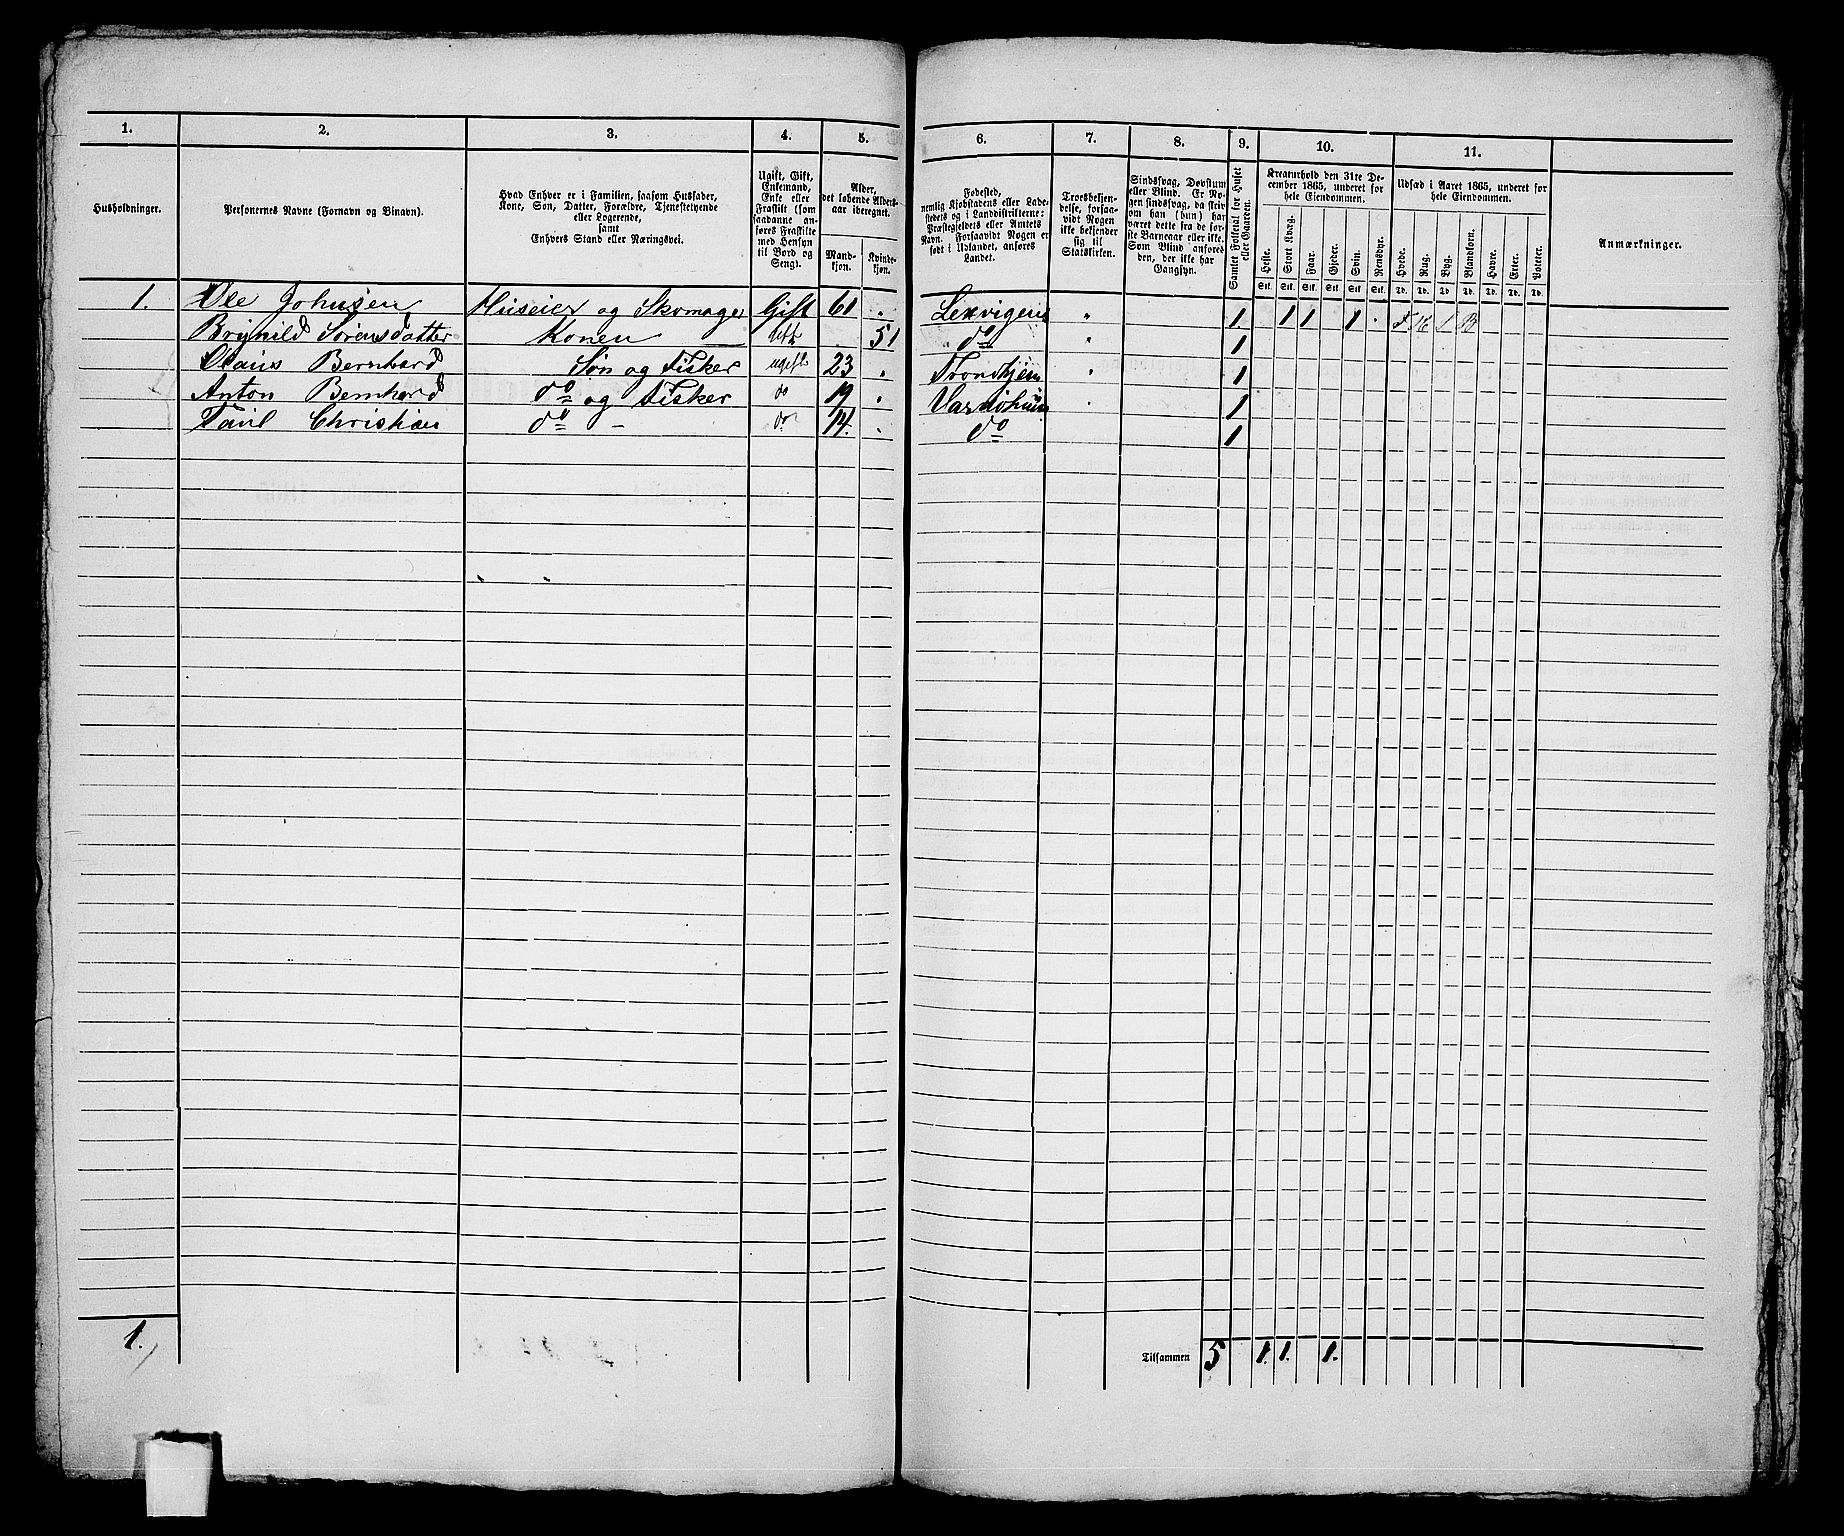 1. 2. 3. 4. 5. 6. 7. 8. 9. 10. 11.
Husholdninger.
Personernes Navne (Fornavn og Binavn).
Hvad Enhver er i Familien, saasom Husfader,
Kone, Søn, Datter, Forældre, Tjenestetyende
eller Logerende,
samt
Enhvers Stand eller Næringsvei.
Ugift, Gift,
Enkemand,
Enke eller
Fraskilt (som
saadanne an-
føres Fraskilte
med Hensyn
til Bord og
Seng).
Alder,
det løbende Alders-
aar iberegnet.
Mand-
kjøn.
Kvinde-
kjøn.
Fødested,
nemlig Kjøbstadens eller Lade-
stedets og i Landdistrikterne:
Præstegjeldets eller Amtets
Navn. Forsaavidt Nogen er
født i Udlandet, anføres
Landet.
Troesbekjen-
delse, forsaa-
vidt Nogen
ikke bekjender
sig til
Statskirken.
Sindssvag, Døvstum
eller Blind. Er No-
gen sindssvag, da skriv
om han (hun) har
været dette fra de før-
ste Barneaar eller ikke.
Som Blind anføres
den, der ikke har
Gangsyn.
Samlet Folketal for Huset
eller Gaarden.
Kreaturhold den 31te De-
cember 1865, underet for
hele Eiendommen.
Heste. Stort Kvæg. Faar. Gjeder. Svin. Rensdyr.
Stk. Stk. Stk. Stk. Stk. Stk.
Udsæd i Aaret 1865, underet for
hele Eiendommen.
Hvede. Rug. Byg. Blandkorn. Havre. Erter. Poteter.
Td. Td. Td. Td. Td. Td. Td.
Anmærkninger.
1. Ole Johnsen Huseier og Skomager Gift 61 " Lexvigen " 1 1 1 1
Brynild Sørensdatter Konen Gift 51 do " 1
Claus Bernhard Søn og Fisker ugift 23 " Trondhjem " 1
Anton Bernhard do og Fisker do 19 " Vardøhuus 1
Paul Christian do do 14. " do 1
1. Tilsammen 5 1. 1. 1.